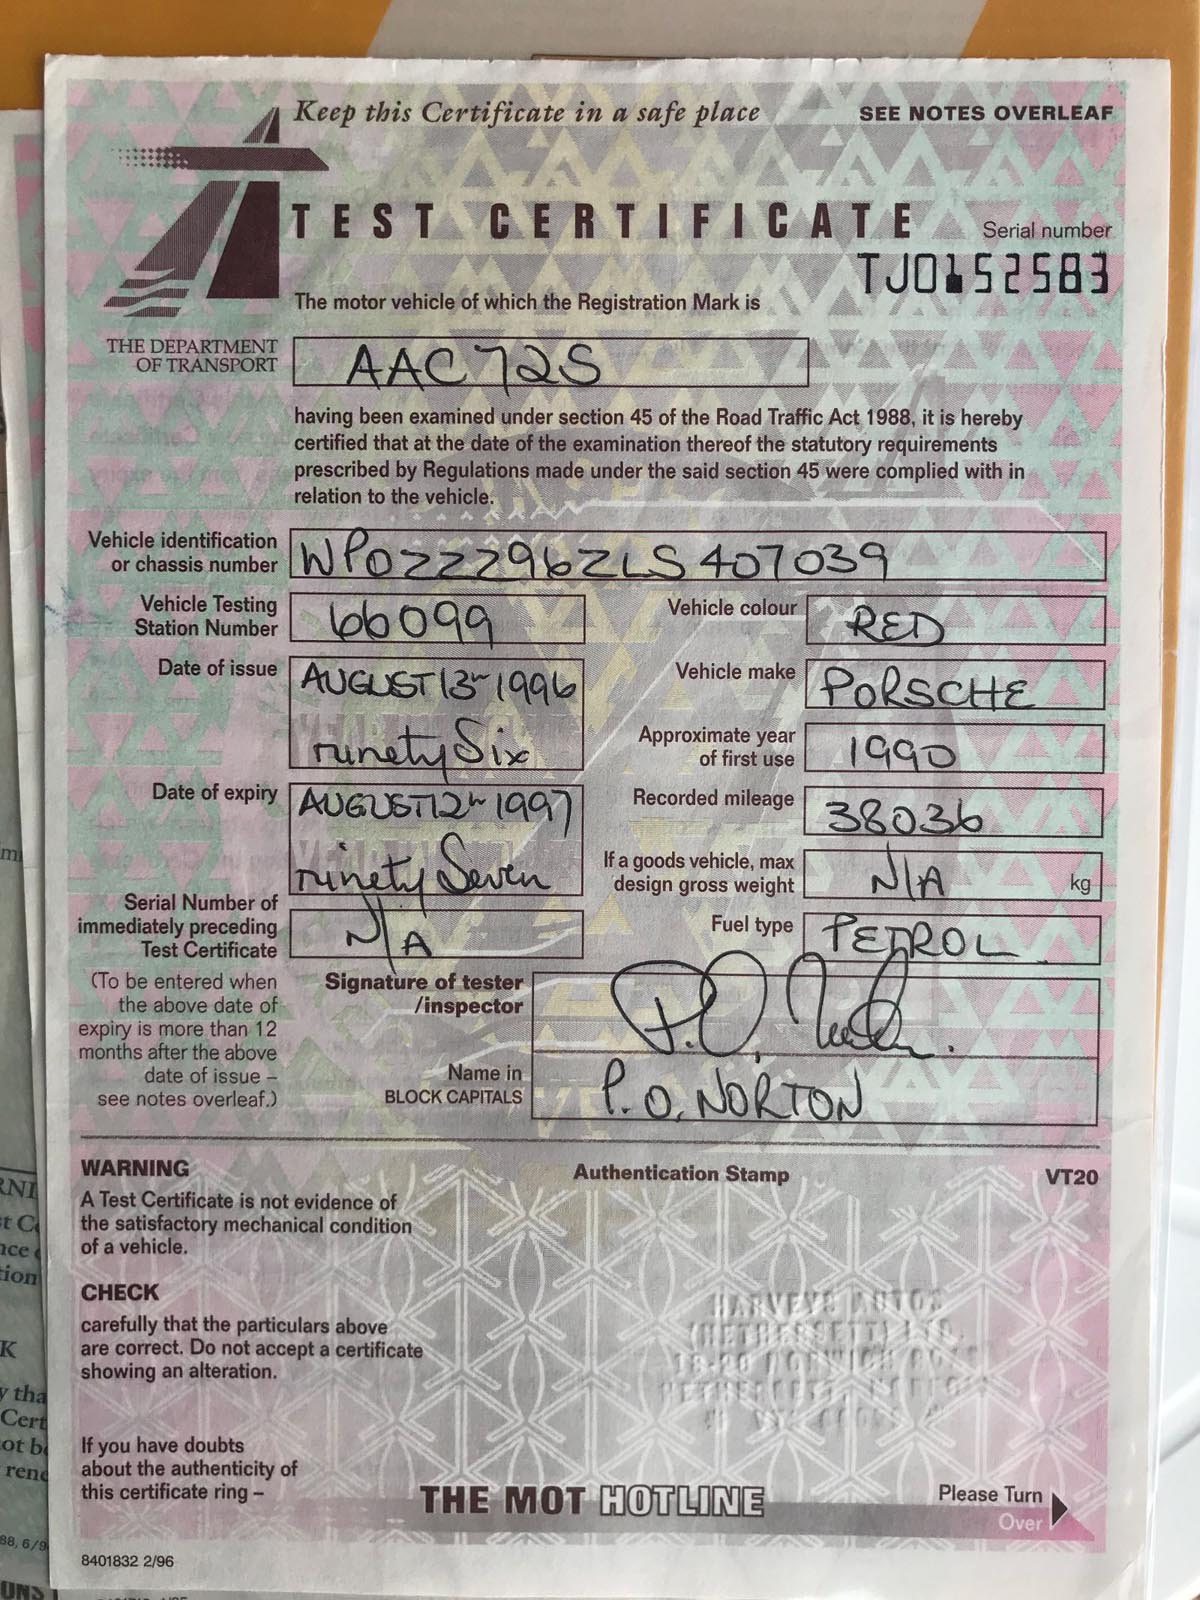 Keep this Certificate in a safe place
SEE NOTES OVERLEAF
TEST CERTIFICATE
Serial number
TJ0152583
The motor vehicle of which the Registration Mark is
THE DEPARTMENT
OF TRANSPORT
AAC 72S
having been examined under section 45 of the Road Traffic Act 1988, it is hereby
certified that at the date of the examination thereof the statutory requirements
prescribed by Regulations made under the said section 45 were complied with in
relation to the vehicle.
Vehicle identification
or chassis number
WP0ZZZ96ZLS407039
Vehicle Testing
Station Number
66099
Vehicle colour
RED
Date of issue
AUGUST 13th 1996
ninety Six
Vehicle make
PORSCHE
Approximate year
of first use
1990
Date of expiry
AUGUST 12th 1997
ninety Seven
Recorded mileage
38036
If a goods vehicle, max
design gross weight
N/A
kg
Serial Number of
immediately preceding
Test Certificate
N/A
Fuel type
PETROL
(To be entered when
the above date of
expiry is more than 12
months after the above
date of issue –
see notes overleaf.)
Signature of tester
/inspector
Name in
BLOCK CAPITALS
P.O. NORTON
WARNING
A Test Certificate is not evidence of
the satisfactory mechanical condition
of a vehicle.
Authentication Stamp
VT20
CHECK
carefully that the particulars above
are correct. Do not accept a certificate
showing an alteration.
HARVEYS AUTOS
(HETHERSETT) LTD.
18-20 NORWICH ROAD
HETHERSETT, NORFOLK
If you have doubts
about the authenticity of
this certificate ring –
THE MOT HOTLINE
Please Turn
Over
8401832 2/96